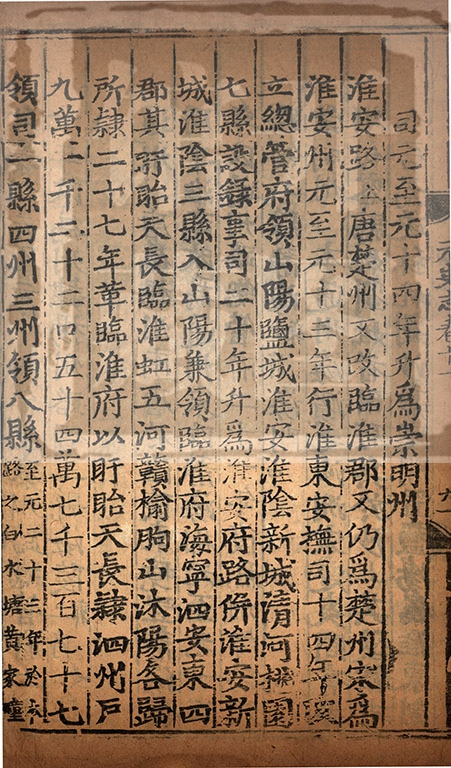 元史志卷十
九
司元至元十四年升爲崇明州
淮安路上唐楚州又改臨淮郡又仍爲楚州宋爲
淮安州元至元十三年行淮東安撫司十四年改
立總管府領山陽鹽城淮安淮陰新城清河桃園
七縣設錄事司二十年升爲淮安府路併淮安新
城淮陰三縣入山陽兼領臨淮府海寧泗安東四
郡其盱眙天長臨淮虹五河贛榆朐山沭陽各歸
所隸二十七年革臨淮府以盱眙天長隸泗州戶
九萬一千二十二口五十四萬七千三百七十七
領司一縣四州三州領八縣
至元二十三年於本
路之白水塘黄家疃